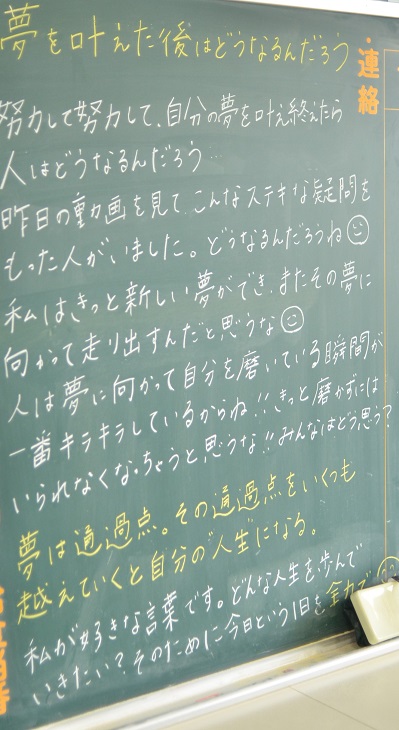 夢を叶えた後はどうなるんだろう
・連絡
努力して努力して、自分の夢を叶え終えたら
人はどうなるんだろう…
昨日の動画を見て、こんなステキな疑問を
もった人がいました。どうなるんだろうね☺
私はきっと新しい夢ができ、またその夢に
向かって走り出すんだと思うな☺
人は夢に向かって自分を磨いている瞬間が
一番キラキラしているからね!!きっと磨かずには
いられなくなっちゃうと思うな!!みんなはどう思う?
夢は通過点。その通過点をいくつも
越えていくと自分の"人生"になる。
私が好きな言葉です。どんな人生を歩んで
いきたい?そのために今日という1日を全力で